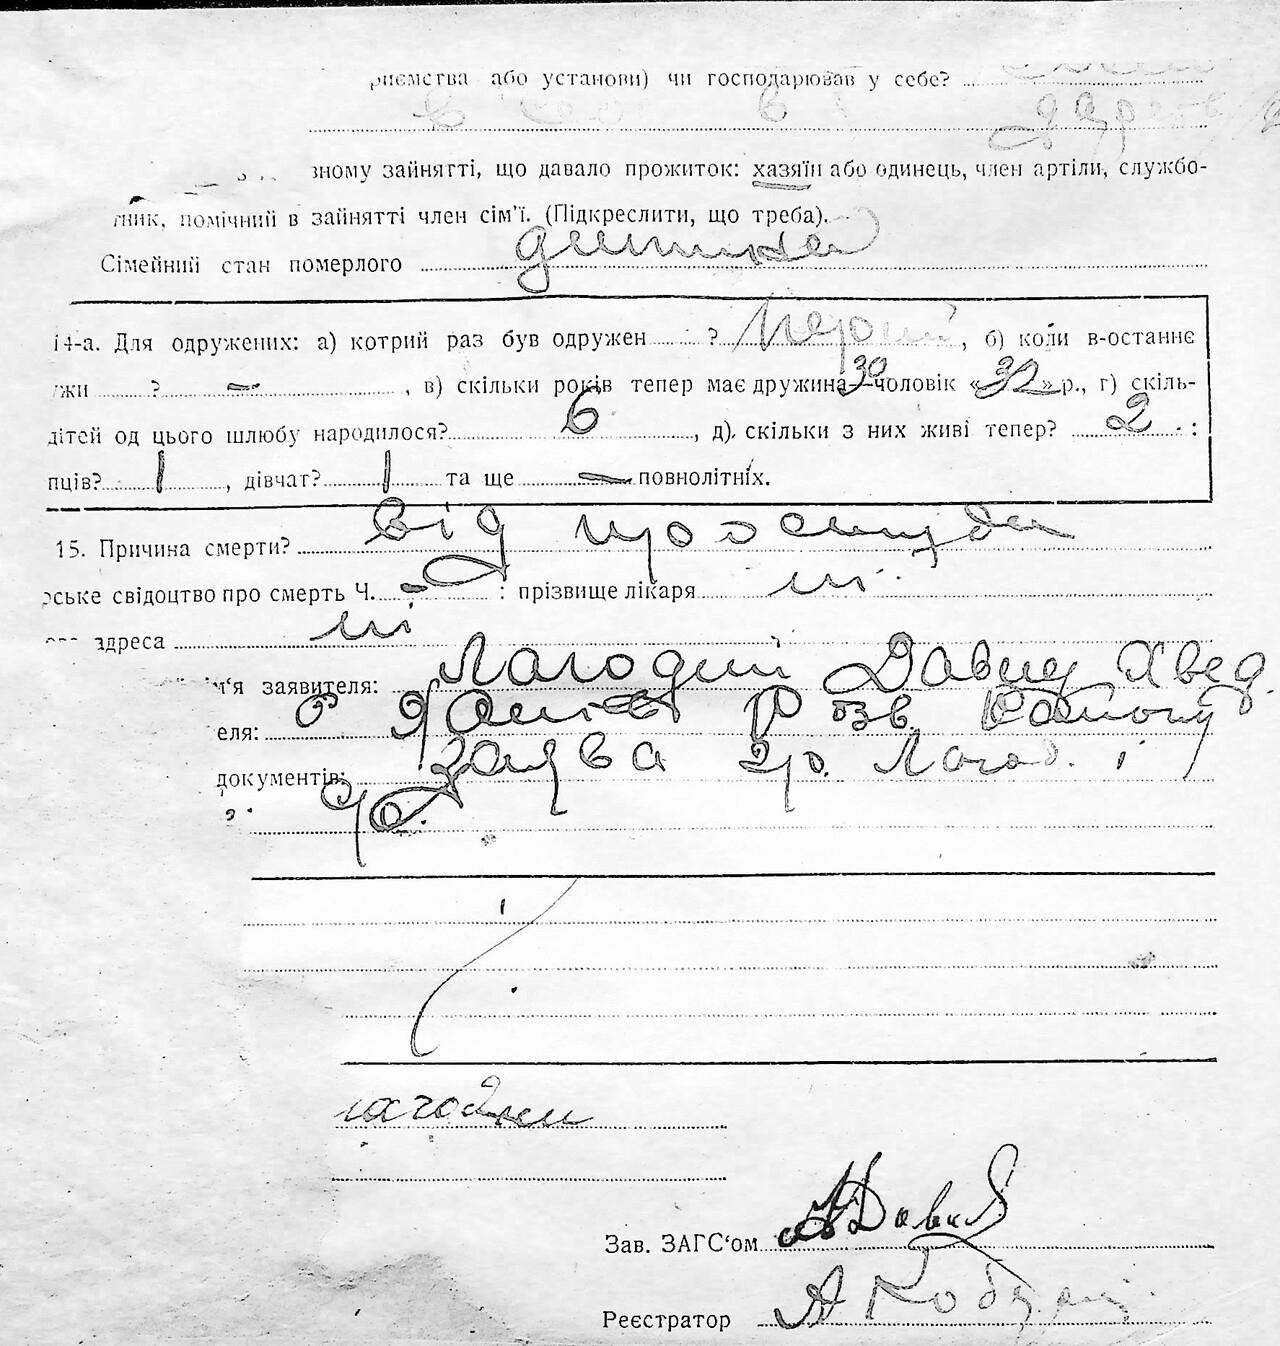 приємства або установи) чи господарював у себе?
в
зному зайнятті, що давало прожиток: хазяїн або одинець, член артіли, службо-
ник, помічний в зайнятті член сім'ї. (Підкреслити, що треба).
Сімейний стан померлого дитина
14-а. Для одружених: а) котрий раз був одружен ? Перший, б) коли в-останнє
жи ? — , в) скільки років тепер має дружина 30 чоловік «32» р., г) скіль-
дітей од цього шлюбу народилося? 6 , д). скільки з них живі тепер? 2 :
пців? 1 , дівчат? 1 та ще — повнолітніх.
15. Причина смерти? Від простуди
рське свідоцтво про смерть Ч. — : прізвище лікаря ні
адреса ні
м'я заявителя: Лагодний Давид Хвед.
еля: Розв.
документів: Заява гр. Лагод. і

Зав. ЗАГС'ом
Реєстратор А